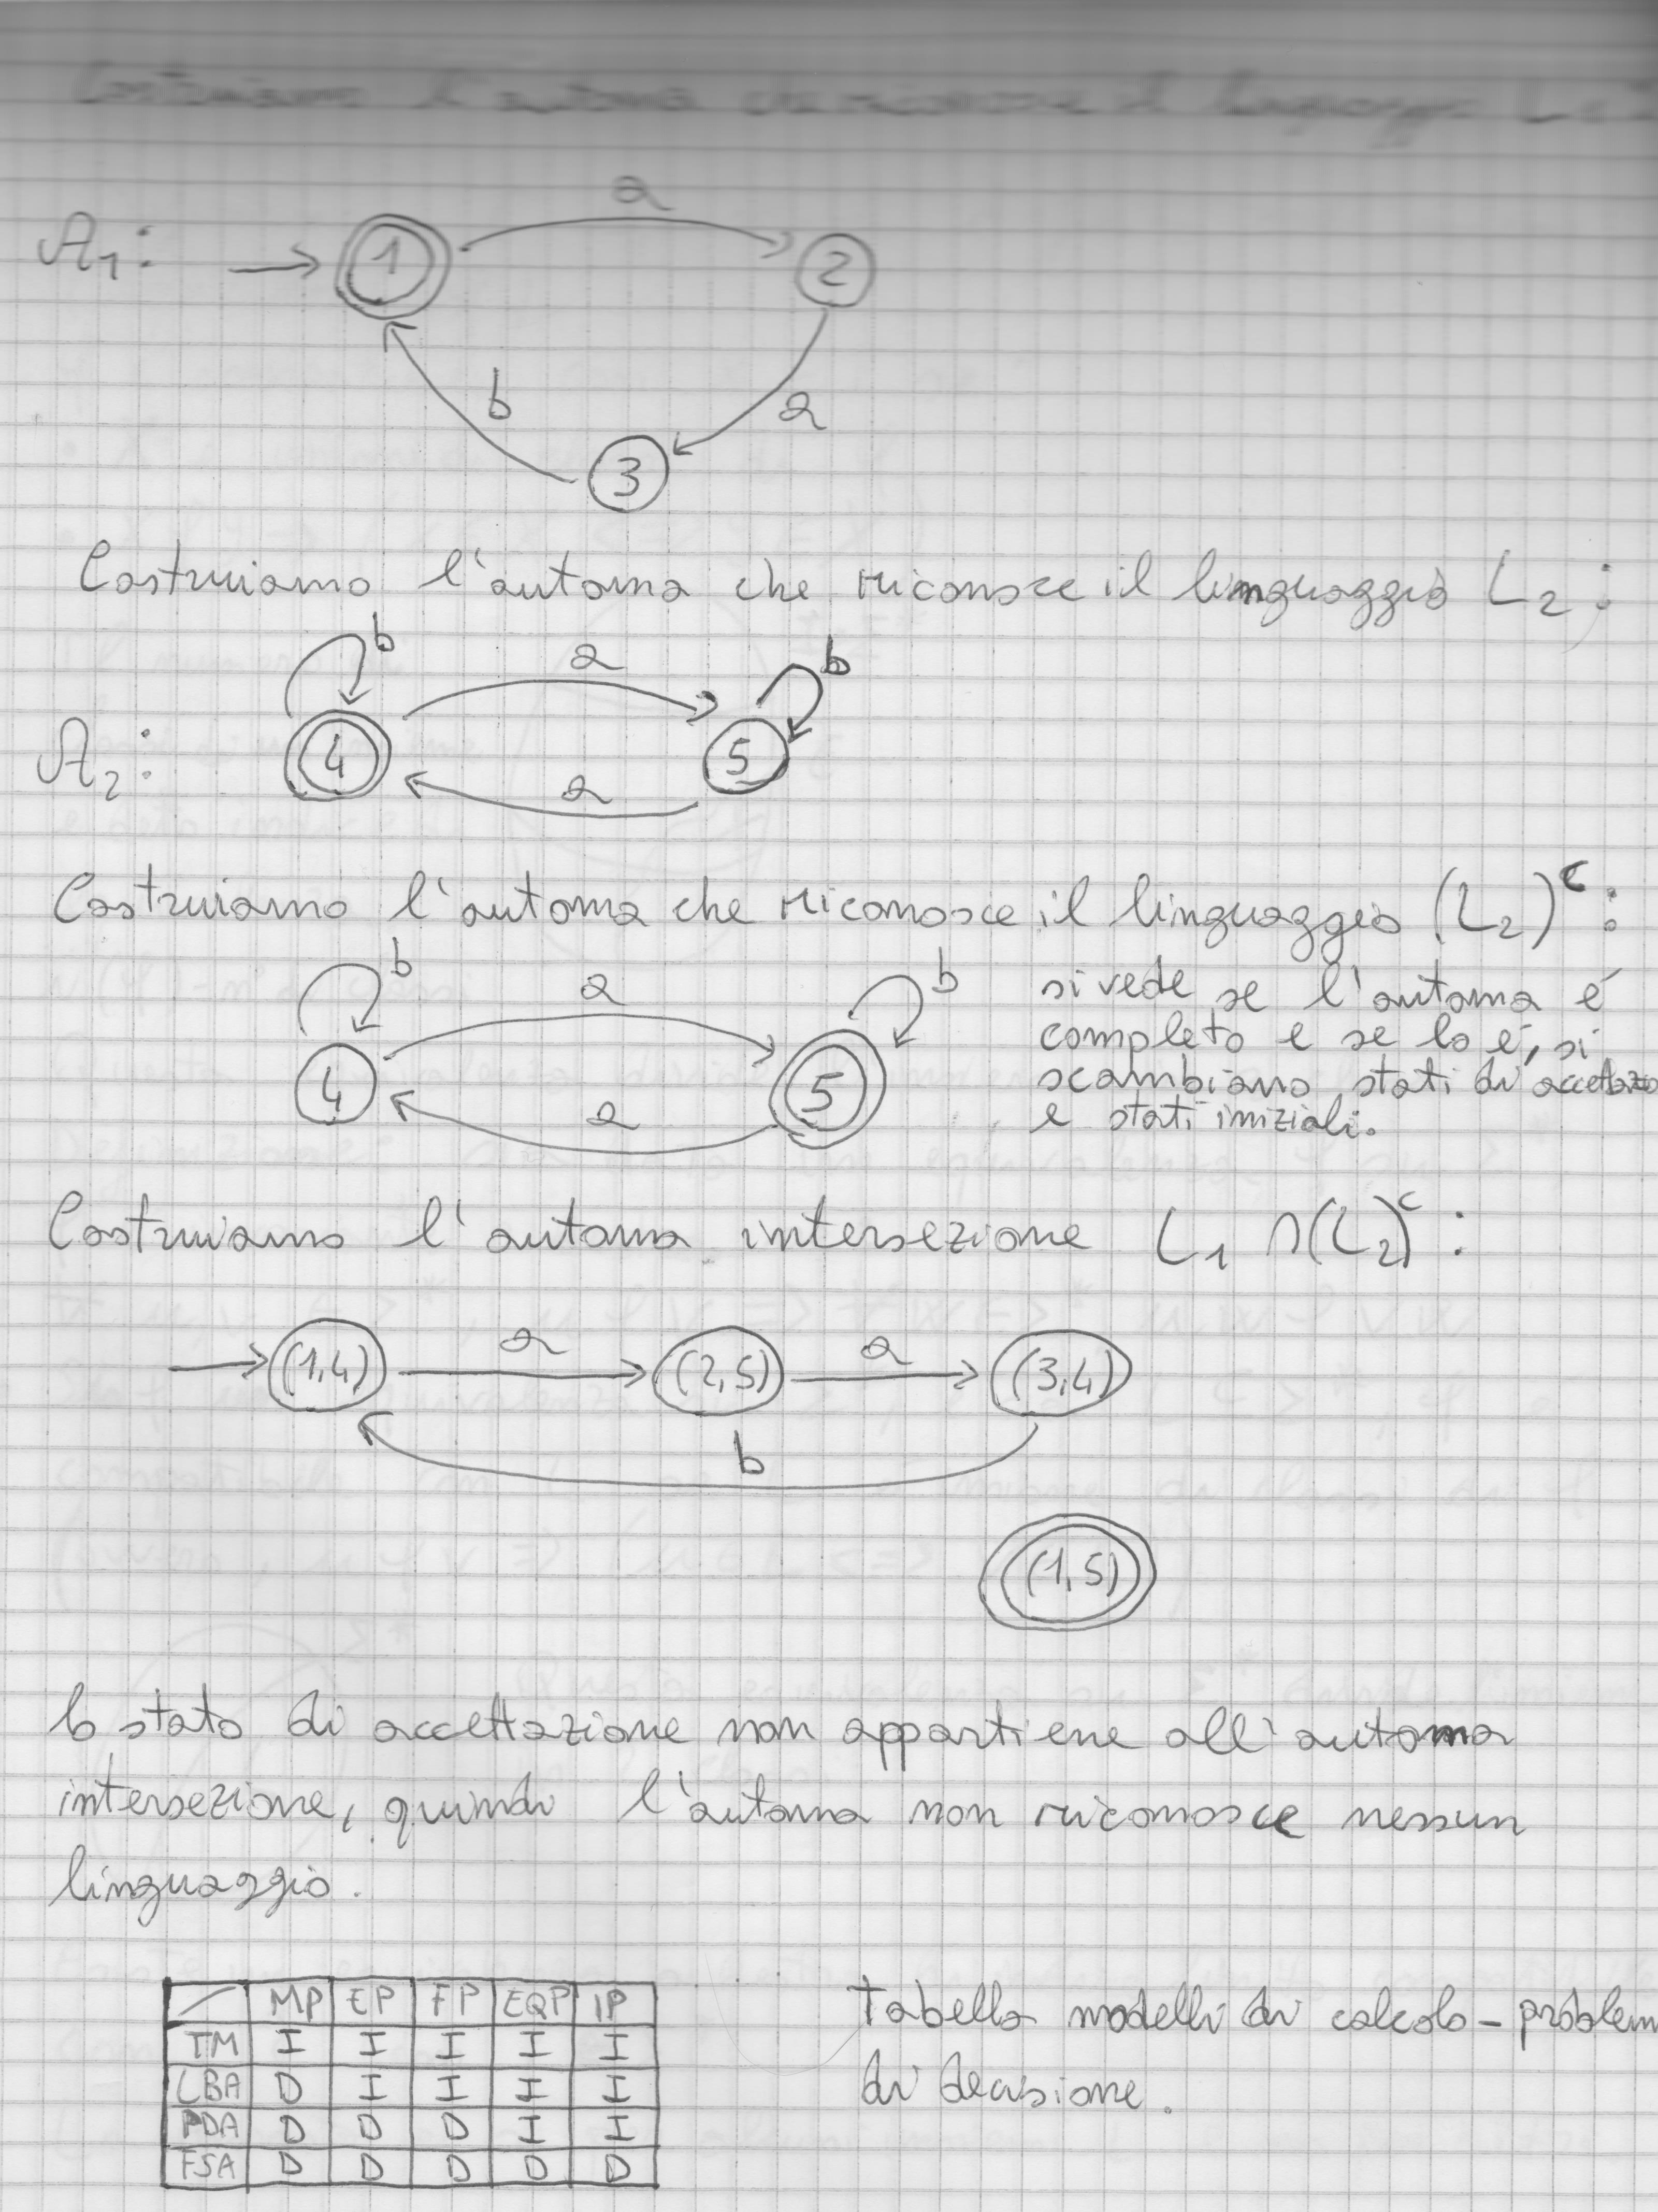 Costruiamo l'automa che riconosce il linguaggio L₁:
A₁:
1
a
2
b
a
3
Costruiamo l'automa che riconosce il linguaggio L₂:
b
a
b
A₂:
4
5
a
Costruiamo l'automa che riconosce il linguaggio (L₂)ᶜ:
b
a
b
4
5
a
si vede se l'automa é
completo e se lo é, si
scambiano stati di accettazio
e stati iniziali.
Costruiamo l'automa intersezione L₁ ∩ (L₂)ᶜ:
(1,4) a (2,5) a (3,4)
b
(1,5)
lo stato di accettazione non appartiene all'automa
intersezione, quindi l'automa non riconosce nessun
linguaggio.
MP EP FP EQP IP
TM I I I I I
LBA D I I I I
PDA D D D I I
FSA D D D D D
Tabella modelli di calcolo - problem
di decisione.